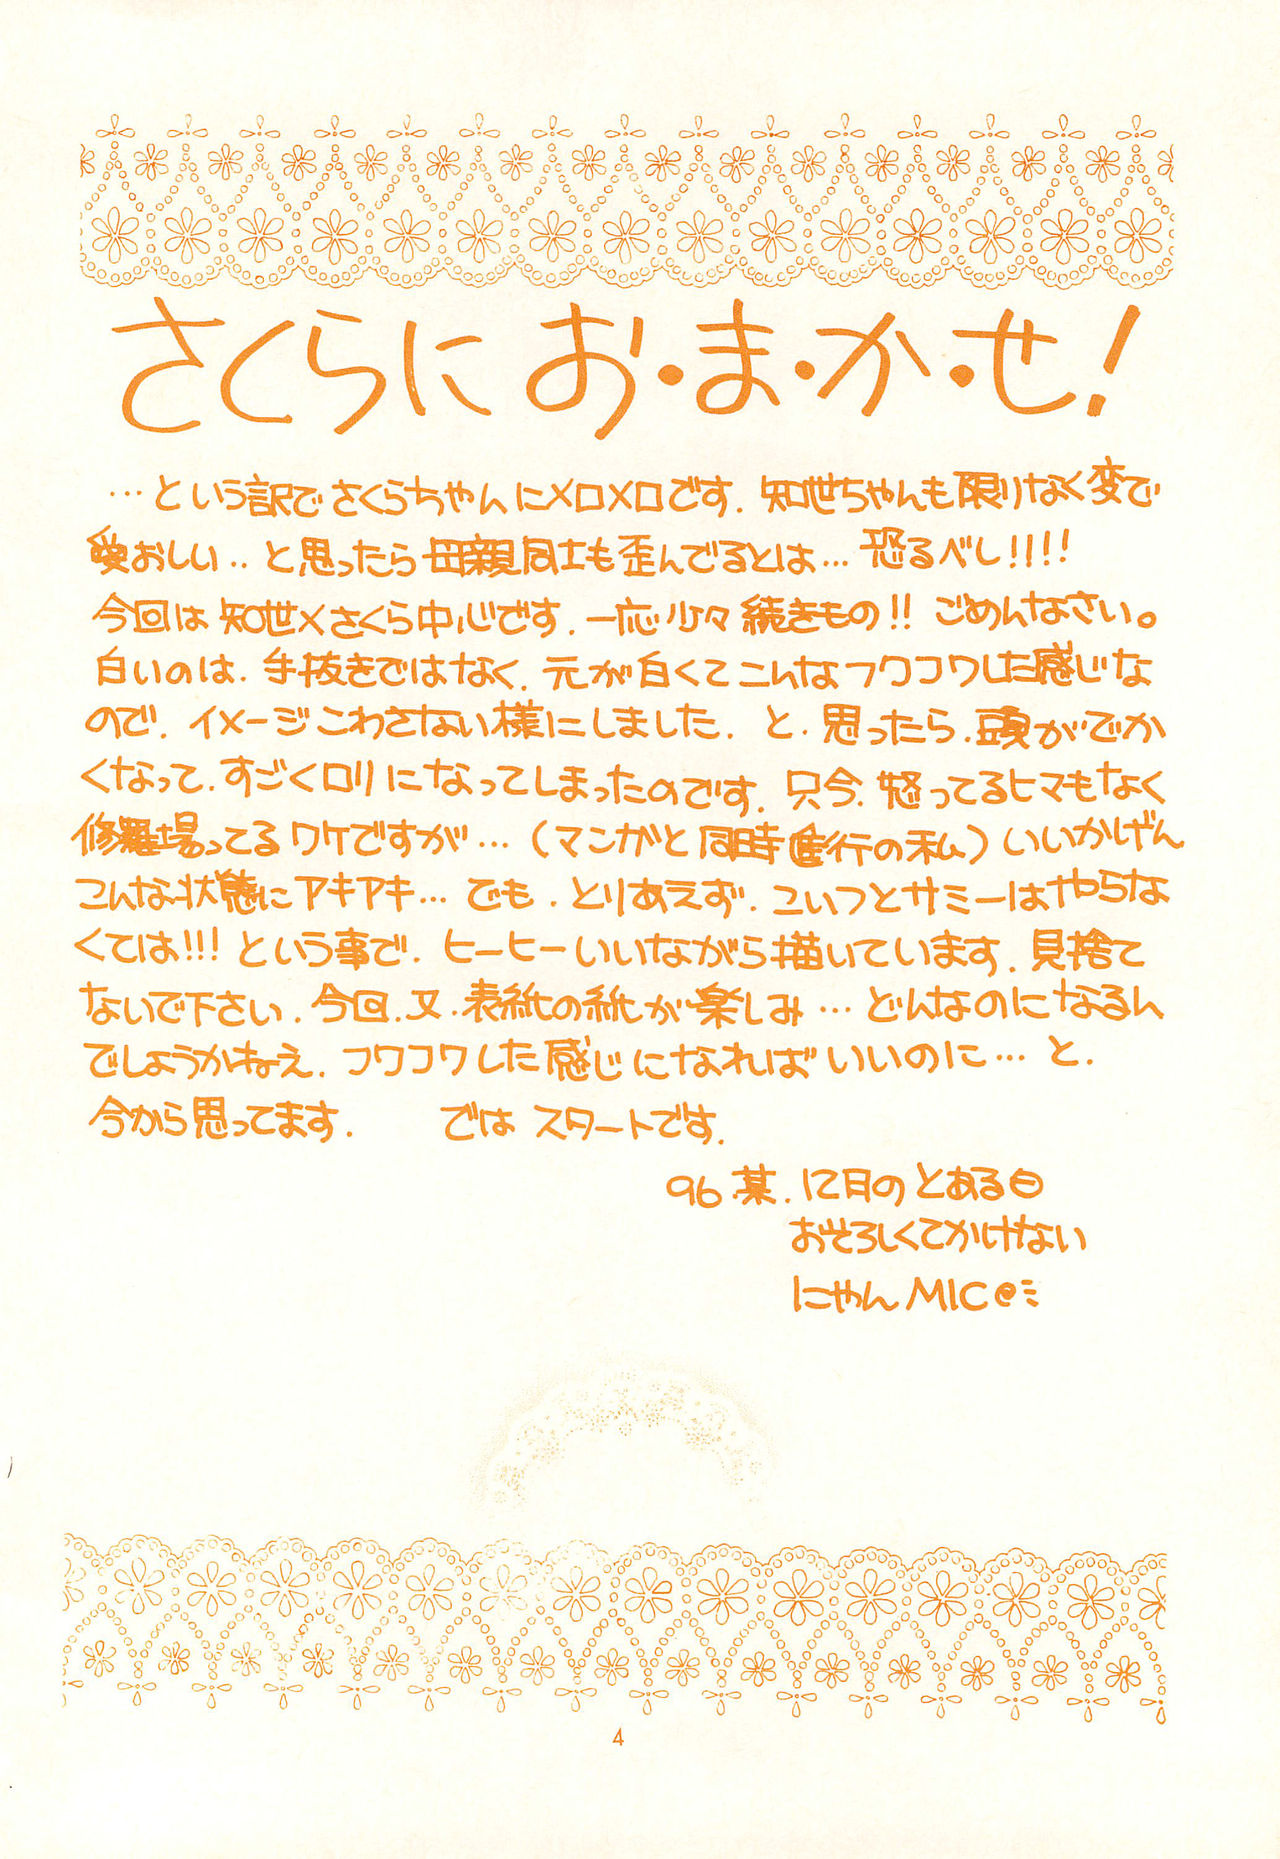 さくらに お・ま・か・せ!
…という訳でさくらちゃんにメロメロです. 知世ちゃんも限りなく変で
愛おしい‥と思ったら母親同士も歪んでるとは…恐るべし!!!!
今回は知世×さくら中心です. 一応少々続きもの!! ごめんなさい。
白いのは. 手抜きではなく. 元が白くてこんなフワコワした感じな
ので. イメージこわさない様にしました. と. 思ったら. 頭がでか
くなって. すごくロリになってしまったのです. 只今. 怒ってるヒマもなく
修羅場ってるワケですが…(マンガと同時進行の私)いいかげん
こんな状態にアキアキ…でも. とりあえず. こいつとサミーはやらな
くては!!! という事で. ヒーヒーいいながら描いています. 見捨て
ないで下さい. 今回. 又. 表紙の紙が楽しみ…どんなのになるん
でしょうかねえ. フワコワした感じになればいいのに…と.
今から思ってます. では スタートです.
96 某. 12月のとある日
おそろしくてかけない
にゃんMIC
4